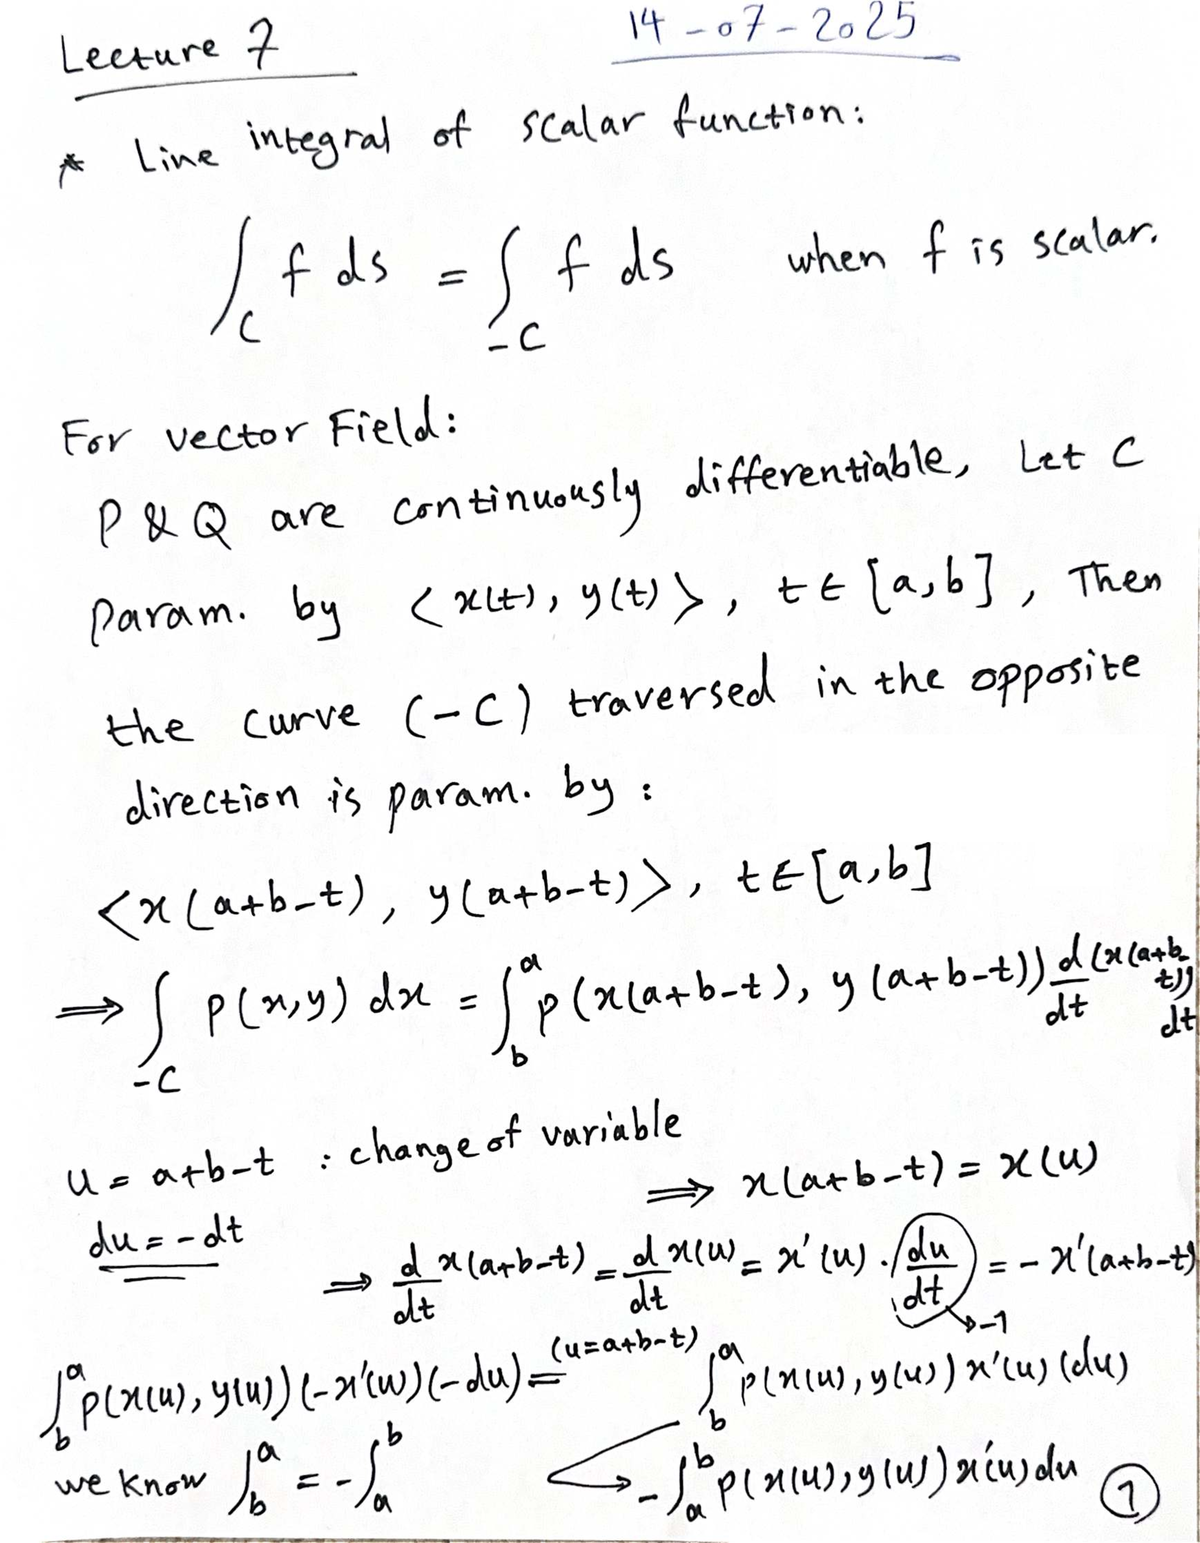 Lecture 7
14-07-2025
* Line integral of scalar function:
∫_C f ds = ∫_{-C} f ds when f is scalar.
For vector Field:
P & Q are continuously differentiable, Let C
param. by <x(t), y(t)>, t ∈ [a,b], Then
the curve (-C) traversed in the opposite
direction is param. by :
<x(a+b-t), y(a+b-t)>, t ∈ [a,b]
⟹ ∫_{-C} P(x,y) dx = ∫_b^a P(x(a+b-t), y(a+b-t)) d/dt (x(a+b-t)) dt
u = a+b-t : change of variable
⟹ x(a+b-t) = x(u)
du = -dt
⟹ d/dt x(a+b-t) = d/dt x(u) = x'(u) · (du/dt) = -x'(a+b-t)
→ -1
∫_b^a P(x(u), y(u)) (-x'(u)) (-du) = (u=a+b-t) ∫_b^a P(x(u), y(u)) x'(u) (du)
we know ∫_b^a = -∫_a^b
→ -∫_a^b P(x(u), y(u)) x'(u) du
1